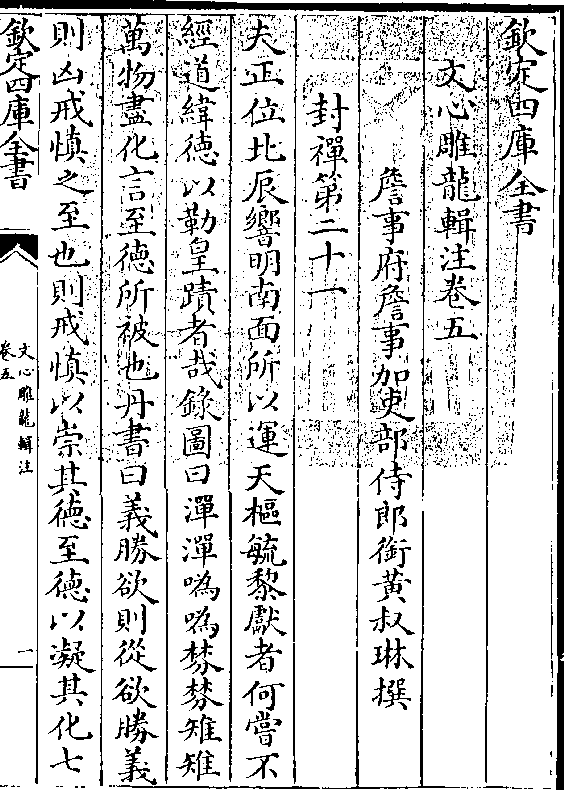 欽定四庫全書
文心雕龍輯注卷五
詹事府詹事加吏部侍郎銜黄叔琳撰
封禪第二十一
夫正位北辰嚮明南面所以運天樞毓黎獻者何嘗不
經道緯德以勒皇蹟者哉錄圖曰潬潬噅噅棼棼雉雉
萬物盡化言至德所被也丹書曰義勝欲則從欲勝義
則凶戒慎之至也則戒慎以崇其德至德以凝其化七
欽定四庫全書
文心雕龍輯注
卷五
一